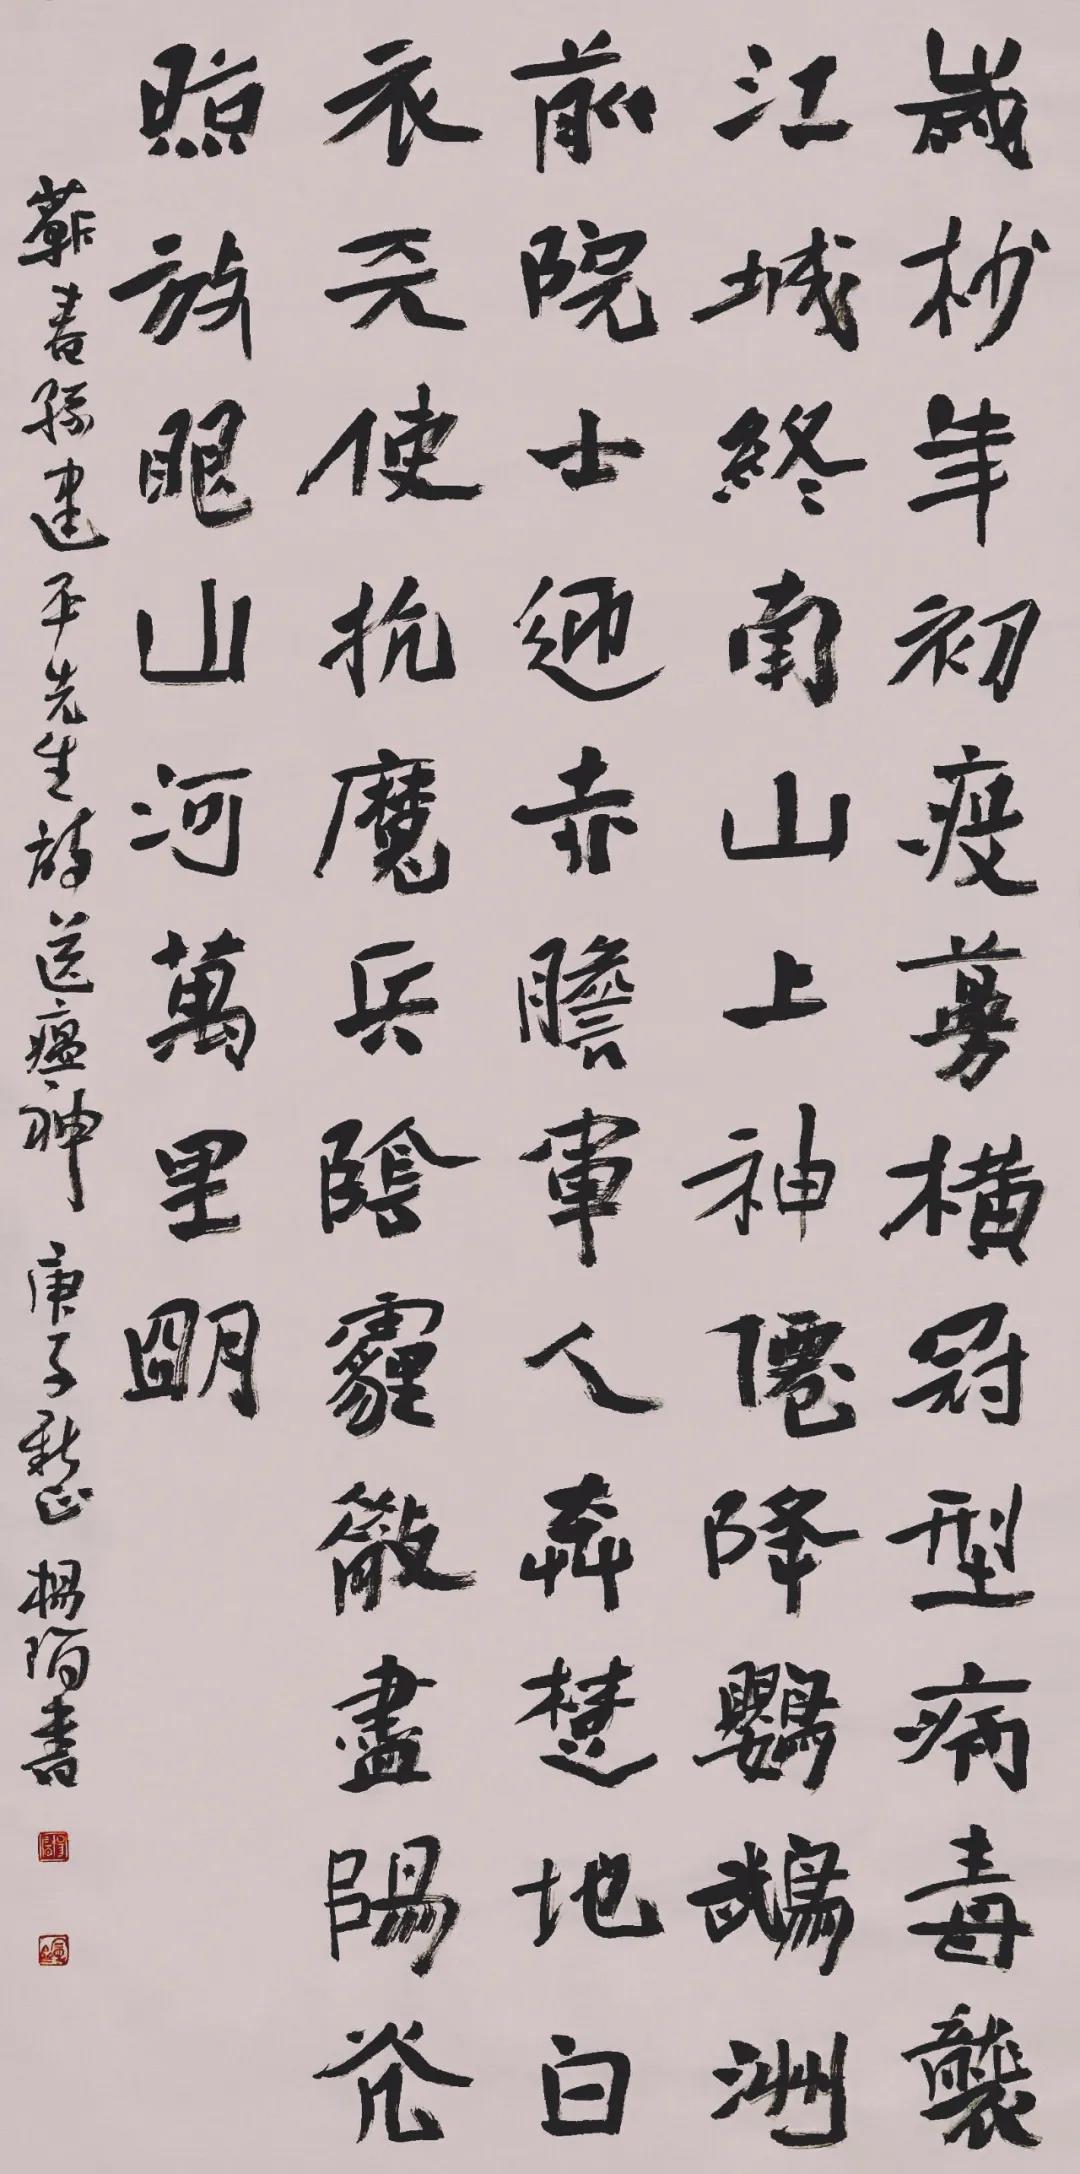 歲杪年初疫蔓橫冠型病毒襲
江城終南山上神僊降鸚鵡洲
前院士迎赤膽軍人奔楚地白
衣天使抗魔兵陰霾散盡陽光
照放眼山河萬里明
蘄春孫建平先生詩送瘟神 庚子新正 楊陌書